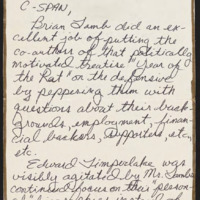 C-SPAN,
Brian Lamb did an ex-
cellent job of putting the
co-authors of that politically
motivated treatise "Year of
the Rat" on the defensive
by peppering them with
questions about their back-
grounds, employment, finan-
cial backers, supporters, etc,
etc.
Edward Timperlake was
visibly agitated by Mr. Lamb's
continued focus on their person-